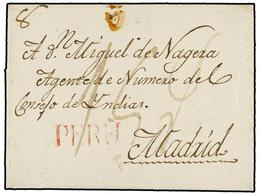 A Dn. Miguel de Nagera
Agente de Numero del
Consejo de Yndias
PERU
Madrid